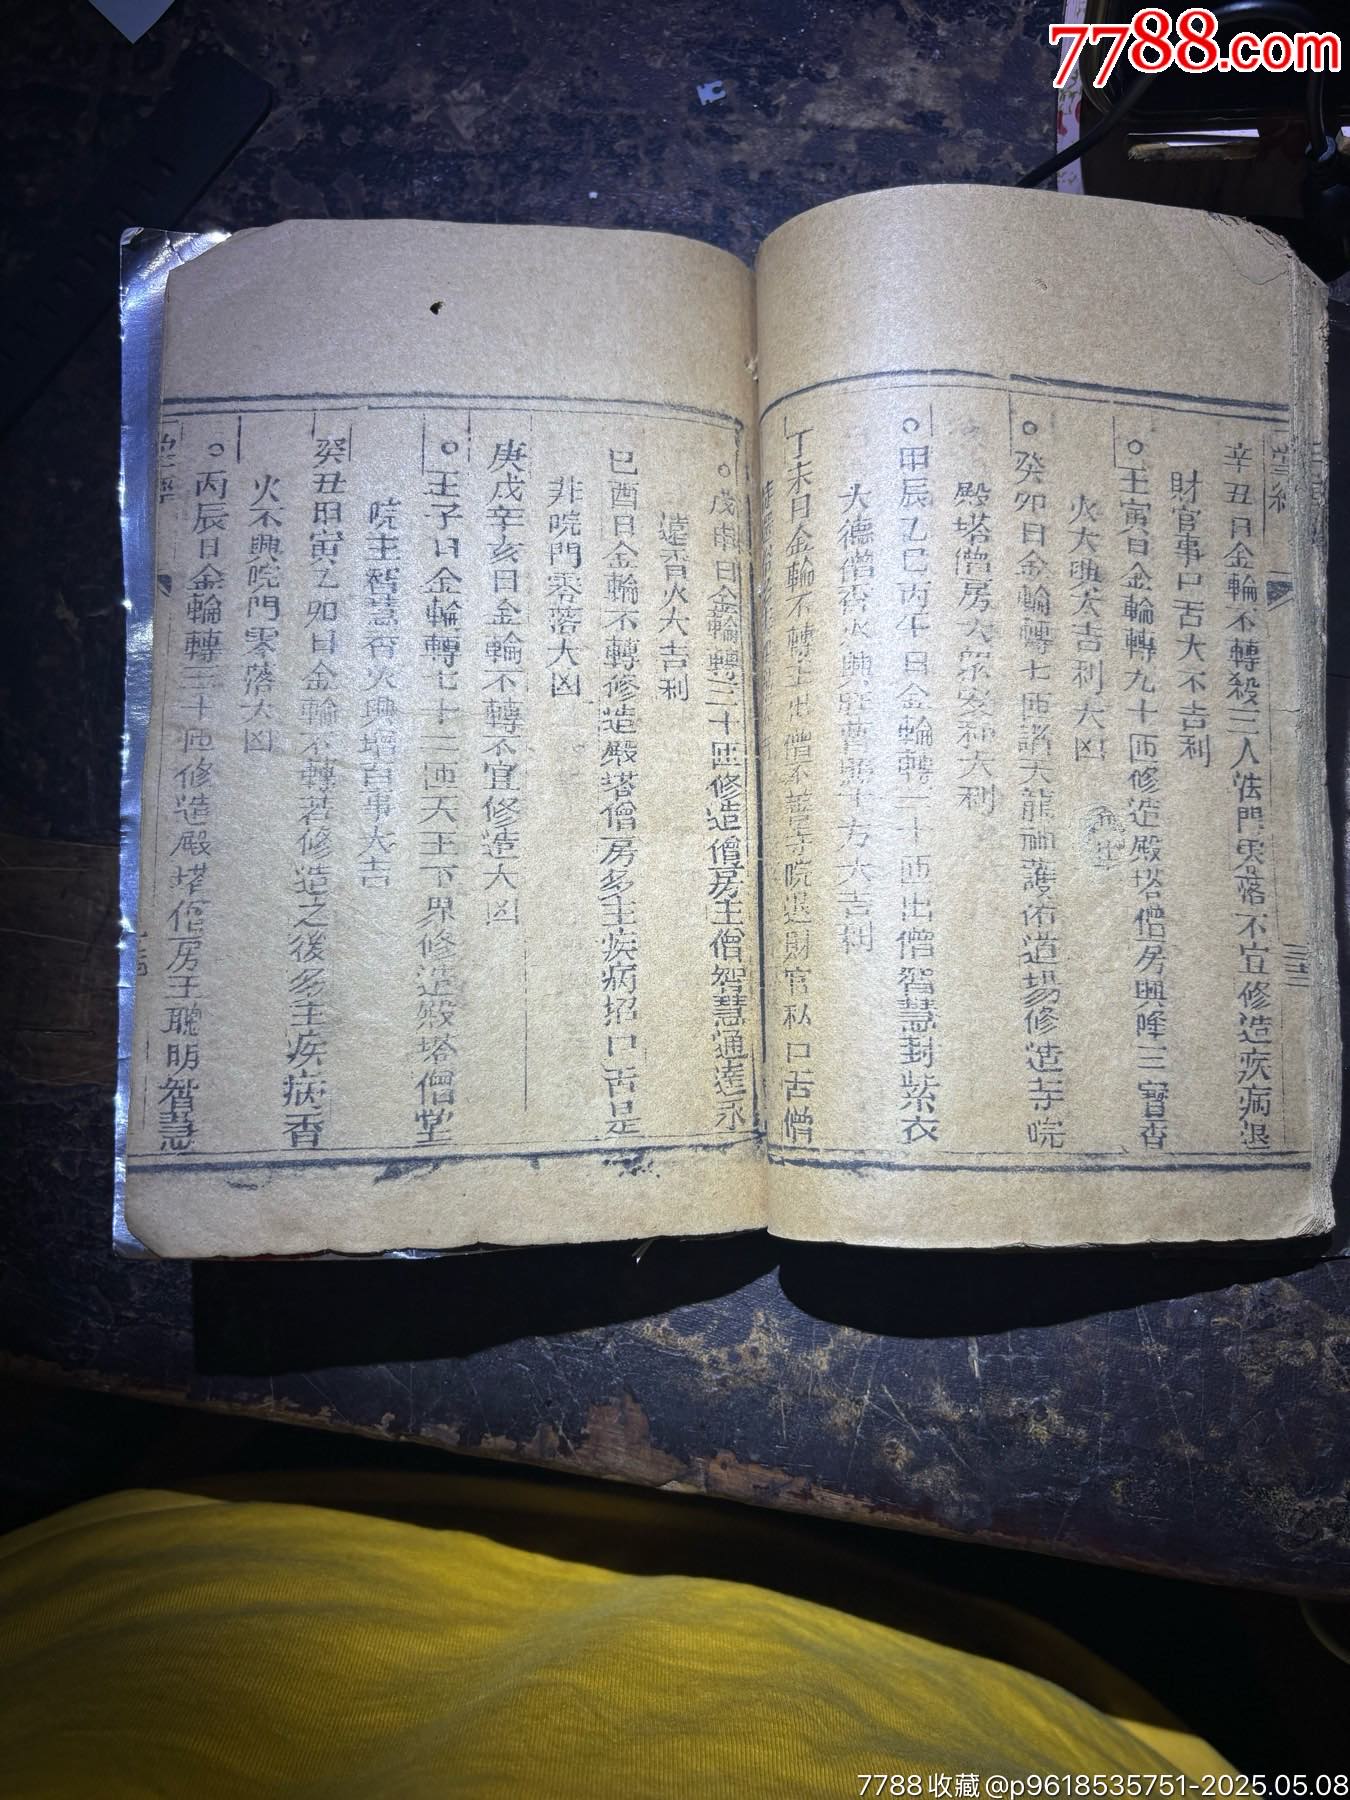 7788.com
辛丑日金輪不轉殺三人法門零落不宜修造疾病退
財官事口舌大不吉利
○壬寅日金輪轉九十匝修造殿塔僧房興隆三寶香
火大興大吉利大凶
○癸卯日金輪轉七匝諸天龍神護佑道場修造寺院
殿塔僧房大眾安和大利
○甲辰乙巳丙午日金輪轉二十匝出僧智慧封紫衣
大德僧香火興旺普 十方大吉利
丁未日金輪不轉主出僧不 寺院退財官私口舌僧
○戊申日金輪轉三十匝修造僧房主僧智慧通達永
遠香火大吉利
己酉日金輪不轉修造殿塔僧房多主疾病招口舌是
非院門零落大凶
庚戌辛亥日金輪不轉不宜修造大凶
○壬子日金輪轉七十二匝天王下界修造殿塔僧堂
院主智慧香火興增百事大吉
癸丑甲寅乙卯日金輪不轉若修造之後多主疾病香
火不興院門零落大凶
○丙辰日金輪轉三十匝修造殿塔僧房主聰明智慧
7788收藏@p9618535751-2025.05.08